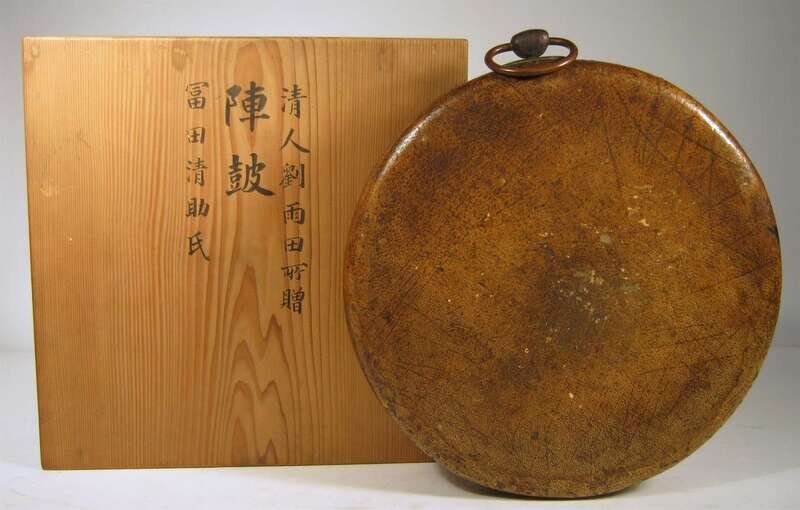 清人劉雨田所贈
陣鼓
冨田清助氏